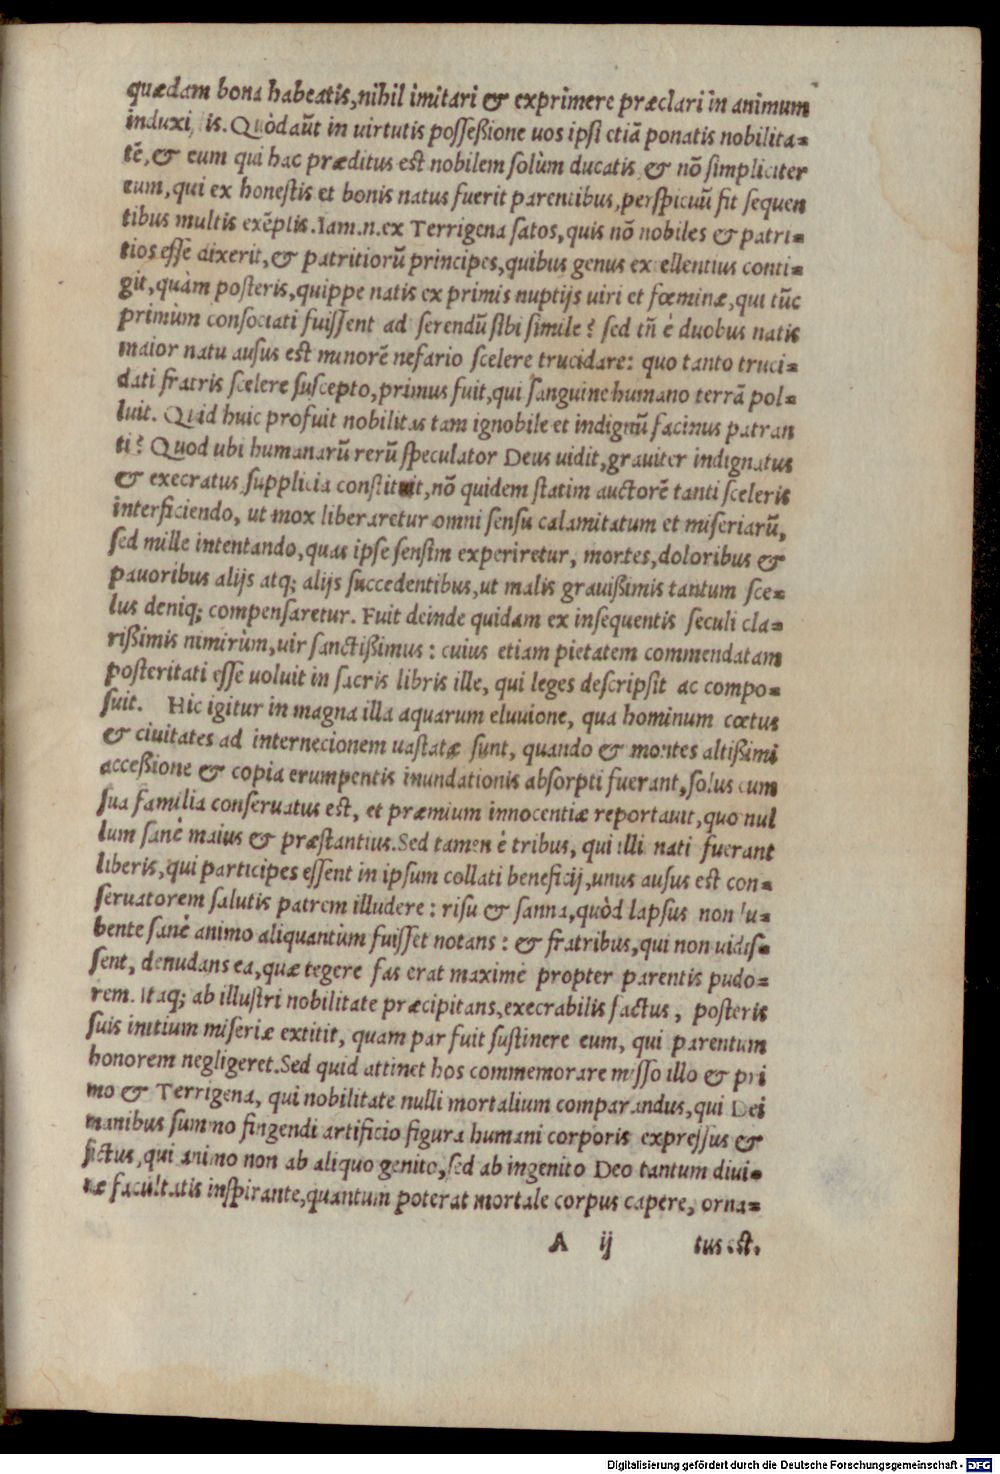 quædam bona habeatis,nihil imitari & exprimere præclari in animum
induxi is. Quòdaũt in uirtutis possessione uos ipsi etiã ponatis nobilita=
tẽ,& eum qui hac præditus est nobilem solùm ducatis & nõ simpliciter
eum, qui ex honestis et bonis natus fuerit parentibus, perspicuũ fit sequen
tibus multis exẽplis. Iam.n.ex Terrigena satos, quis nõ nobiles & patri=
tios esse dixerit,& patritiorũ principes, quibus genus excellentius conti=
git, quàm posteris, quippe natis ex primis nuptijs uiri et fœminæ, qui tũc
primùm consociati fuissent ad serendũ sibi simile? sed tñ è duobus natis
maior natu ausus est minorẽ nefario scelere trucidare: quo tanto truci=
dati fratris scelere suscepto, primus fuit, qui sanguine humano terrã pol=
luit. Quid huic profuit nobilitas tam ignobile et indignũ facinus patran
ti? Quod ubi humanarũ rerũ speculator Deus uidit, grauiter indignatus
& execratus supplicia constituit, nõ quidem statim auctorẽ tanti sceleris
interficiendo, ut mox liberaretur omni sensu calamitatum et miseriarũ,
sed mille intentando, quas ipse sensim experiretur, mortes, doloribus &
pauoribus alijs atq; alijs succedentibus, ut malis grauissimis tantum sce=
lus deniq; compensaretur. Fuit deinde quidam ex insequentis seculi cla=
rissimis nimirùm, uir sanctissimus: cuius etiam pietatem commendatam
posteritati esse uoluit in sacris libris ille, qui leges descripsit ac compo=
suit. Hic igitur in magna illa aquarum eluuione, qua hominum cœtus
& ciuitates ad internecionem uastatæ sunt, quando & montes altissimi
accessione & copia erumpentis inundationis absorpti fuerant, solus cum
sua familia conseruatus est, et præmium innocentiæ reportauit, quo nul
lum sanè maius & præstantius. Sed tamen è tribus, qui illi nati fuerant
liberis, qui participes essent in ipsum collati beneficij, unus ausus est con=
seruatorem salutis patrem illudere: risu & sanna, quòd lapsus non lu=
bente sanè animo aliquantùm fuisset notans: & fratribus, qui non uidis=
sent, denudans ea, quæ tegere fas erat maximè propter parentis pudo=
rem. Itaq; ab illustri nobilitate præcipitans, execrabilis factus, posteris
suis initium miseriæ extitit, quam par fuit sustinere eum, qui parentum
honorem negligeret. Sed quid attinet hos commemorare misso illo & pri
mo & Terrigena, qui nobilitate nulli mortalium comparandus, qui Dei
manibus summo fingendi artificio figura humani corporis expressus &
fictus, qui animo non ab aliquo genito, sed ab ingenito Deo tantum diui=
næ facultatis inspirante, quantum poterat mortale corpus capere, orna=
A ij tus est.
Digitalisierung gefördert durch die Deutsche Forschungsgemeinschaft - DFG